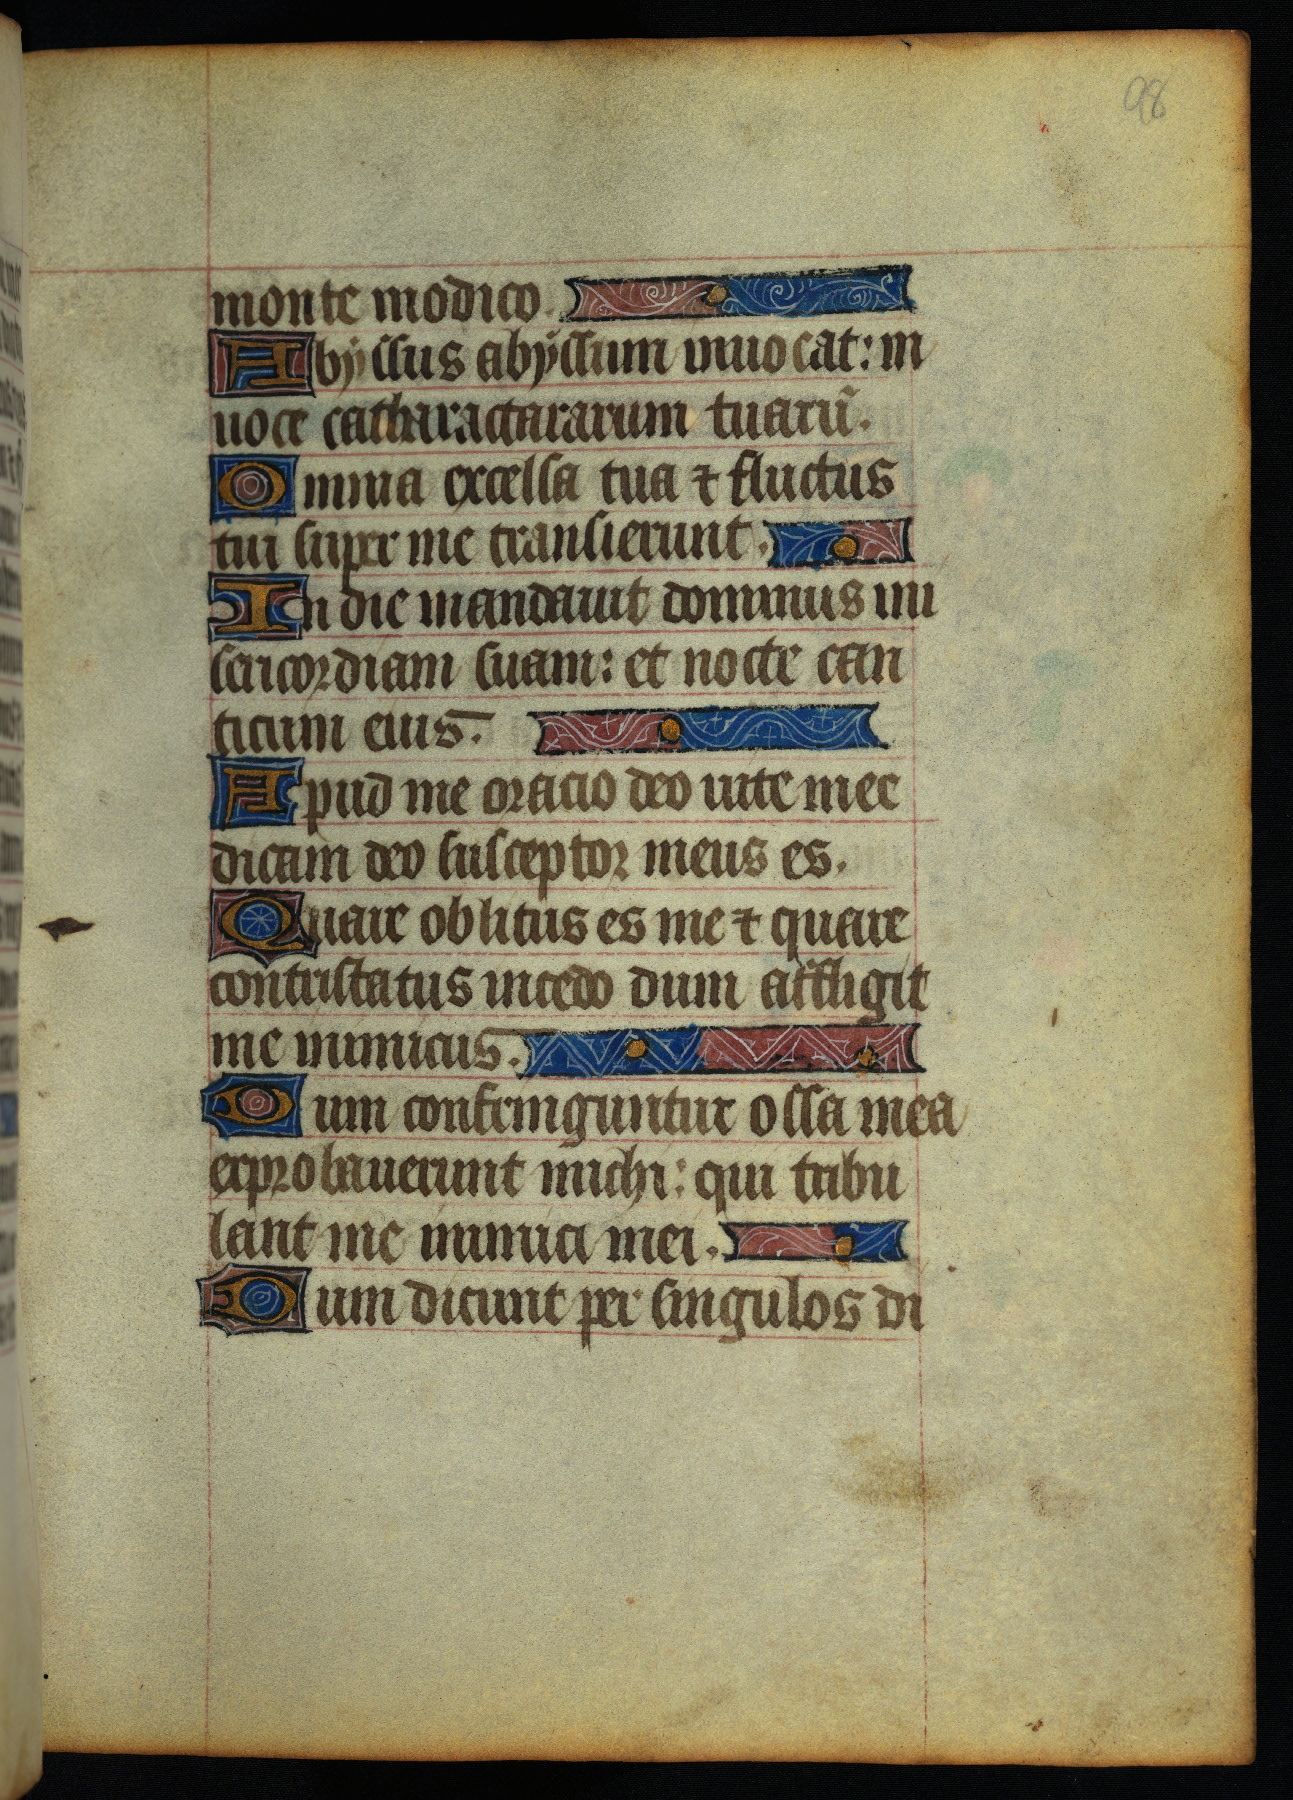 98
monte modico.
Abyssus abyssum inuocat: in
uoce catharactararum tuarū.
Omnia excelsa tua ⁊ fluctus
tui super me transierunt.
In die mandauit dominus mi
sericordiam suam: et nocte can
ticum eius.
Apud me oracio deo uite mee
dicam deo susceptor meus es.
Quare oblitus es me ⁊ quare
contristatus incedo dum affligit
me inimicus.
Dum confringuntur ossa mea
exprobauerunt michi: qui tribu
lant me inimici mei.
Dum dicunt per singulos di